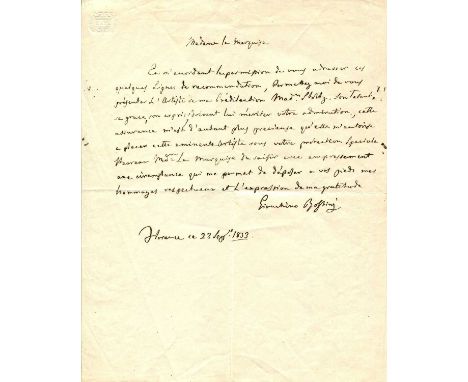 Madame la Marquise
En m'accordant la permission de vous adresser ces
quelques lignes de recommendation, Permettez moi de vous
présenter l'Artiste de ma Prédilection Mad.e Stoltz. Son Talent
sa grace, son esprit doivent lui mériter votre admiration, cette
assurance m'est d'autant plus precieuse qu'elle m'autorise
a placer cette eminente Artiste sous votre protection speciale
Heureux Mad.e La Marquise de saisir avec empressement
une circonstance qui me permet de déposer a vos pieds mes
hommages respectueux et l'expression de ma gratitude
Gioachino Rossini
Florence ce 23 Sept. 1853.